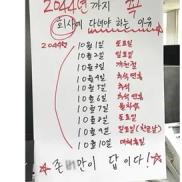 2044년까지 꼭
회사에 다녀야 하는 이유
2044년
10월 1일 토요일
10월 2일 일요일
10월 3일 개천절
10월 4일 추석연휴
10월 5일 추석
10월 6일 추석연휴
10월 7일
10월 8일 토요일
10월 9일 일요일(한글날)
10월 10일 대체휴일
존버만이 답이다!